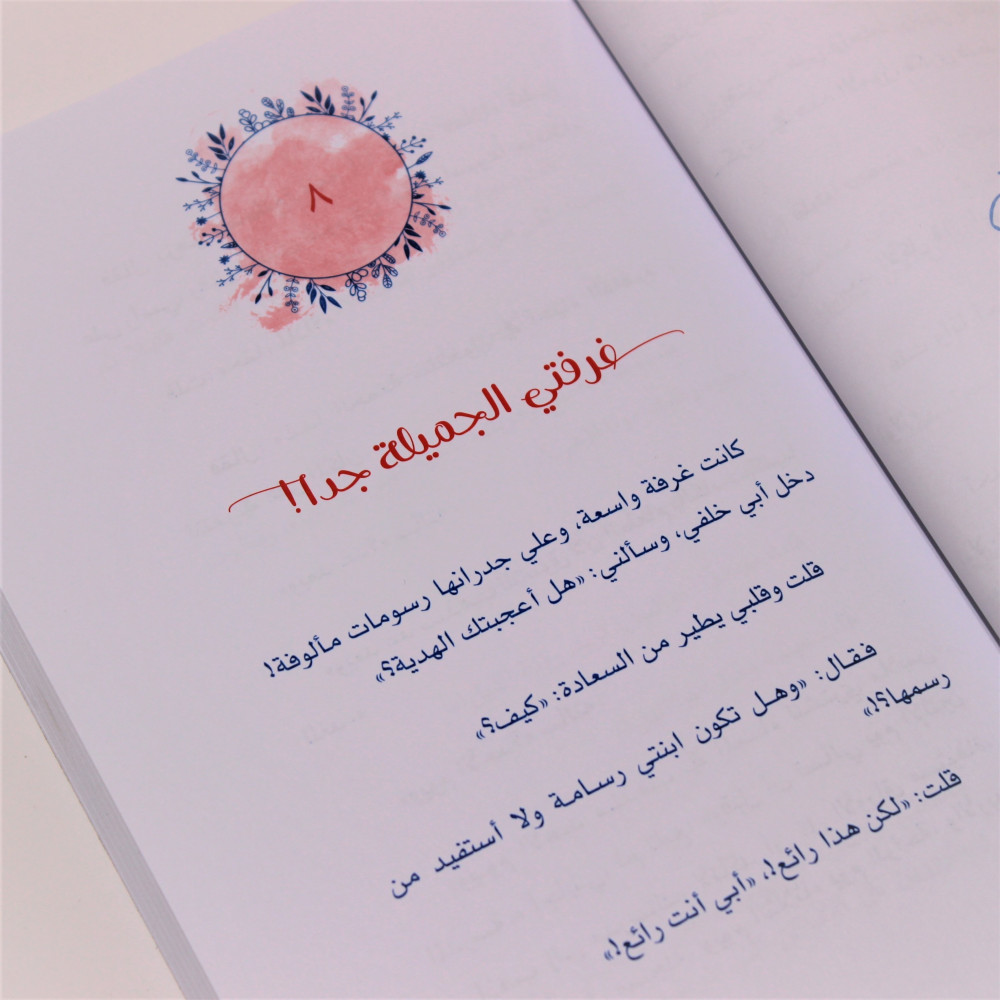 ٨
غرفتي الجميلة جدا!
كانت غرفة واسعة، وعلي جدرانها رسومات مألوفة!
دخل أبي خلفي، وسألني: «هل أعجبتك الهدية؟»
قلت وقلبي يطير من السعادة: «كيف؟»
فقال: «وهل تكون ابنتي رسامة ولا أستفيد من
رسمها؟!»
قلت: «لكن هذا رائع!، «أبي أنت رائع!»